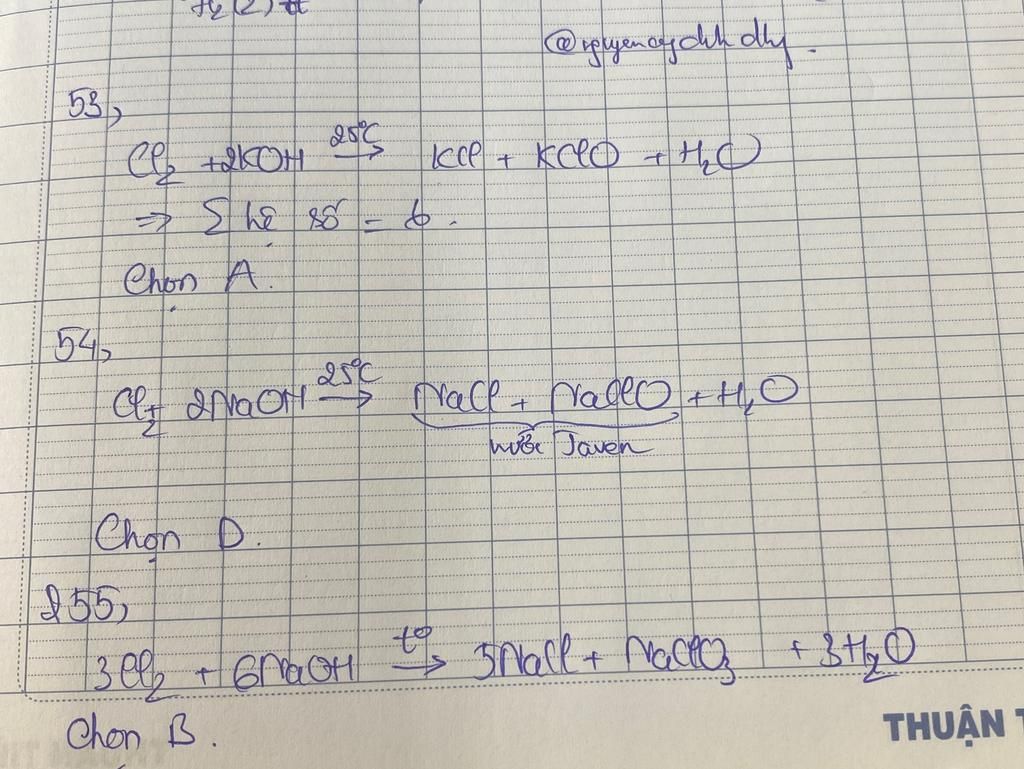 H₂(2)
53,
Cl₂ + 2KOH 25°C → KCl + KClO + H₂O
⇒ Σ hệ số = 6.
Chọn A.
54,
Cl₂ + 2NaOH 25°C → NaCl + NaClO + H₂O
nước Javen
Chọn D.
255,
3Cl₂ + 6NaOH t° → 5NaCl + NaClO₃ + 3H₂O
Chọn B.
THUẬN T